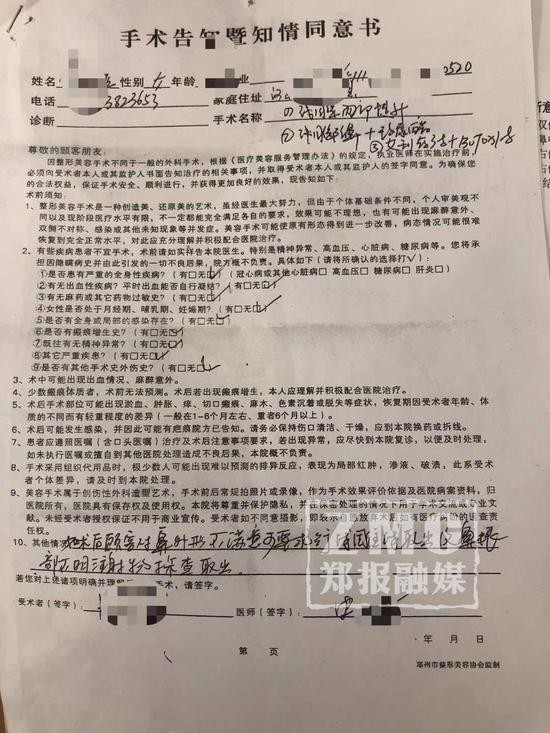 手术告知暨知情同意书
姓名 性别 女 年龄 业 2520
电话 3823653 家庭住址
诊断 手术名称 ①
②
③
尊敬的顾客朋友:
因整形美容手术不同于一般的外科手术,根据《医疗美容服务管理办法》的规定,执业医师在实施治疗前,
必须向受术者本人或其监护人书面告知治疗的相关事项,并取得受术者本人或其监护人的签字同意。为确保您
的合法权益,保证手术安全、顺利进行,并获得更加良好的效果,现告知如下:
术前须知:
1、整形美容手术是一种创造美、还原美的艺术,虽经医生最大努力,但由于个体基础条件不同,个人审美观不
同以及现阶段医疗水平有限,不一定都能完全满足各自的要求,效果可能不理想,也有可能出现麻醉意外、
双侧不对称、感染或其他未知现象等并发症。美容手术可能使原有形态得到进一步改善,病态情况可能很难
恢复到完全正常水平,对此应充分理解并积极配合医院治疗。
2、有些疾病患者不宜手术,术前请如实详告本院医生。特别是精神异常、高血压、心脏病、糖尿病等。您将承
担因隐瞒病史并由此引发的一切不良后果,院方概不负责。具体如下(请将所确认的选择打√):
①是否患有严重的全身性疾病?(有□无□)(冠心病或其他心脏病□ 高血压□ 糖尿病□ 肝炎□)
②有无出血性疾病?平时出血能否自行凝结?(有□无□)
③有无麻药或其它药物过敏史?(有□无□)
④女性是否处于月经期、哺乳期、妊娠期?(有□无□)
⑤是否有全身或局部的感染存在?(有□无□)
⑥是否有瘢痕增生史?(有□无□)
⑦既往有无精神异常?(有□无□)
⑧其它严重疾患?(有□无□)
⑨是否有其他手术史外伤史?(有□无□)
3、术中可能出现出血情况、麻醉意外。
4、少数瘢痕体质者,术前无法预测。术后若出现瘢痕增生,本人应理解并积极配合医院治疗。
5、术后手术部位可能出现淤血、肿胀、痒、切口瘢痕、麻木、色素沉着或脱失等症状,恢复期因受术者年龄、体
质的不同而有轻重程度的差异(一般在1-6个月左右、重者6个月以上)。
6、术后可能发生感染,并因此可能有疤痕院方已告知。请务必保持伤口清洁、干燥,应到本院换药或拆线。
7、患者应遵照医嘱(含口头医嘱)治疗及术后注意事项要求,若出现异常,应尽快到本院复诊,以便及时处理,
如未执行医嘱或擅自到其他医院处理造成不良后果,本院概不负责。
8、手术采用组织代用品时,极少数人可能出现难以预测的排异反应,表现为局部红肿,渗液、破溃,此系受术
者个体差异,请及时到本院处理。
9、美容手术属于创伤性外科造型艺术,手术前后常规拍照片或录像,作为手术效果评价依据及医院病案资料,归
医院所有,医院具有保存权及使用权。本院将尊重并保护隐私,并在保密处理的情况下用于学术交流或专业
文献。未经受术者授权保证不用于商业宣传。受术者如不同意摄影,即表示自愿放弃术后如有医疗纠纷的追责
任权。
10、其他情况 术后顾客对鼻外形不满意
部不明注射物 探查取出
若您对上述诸项明确并理解 手术,请签字。
受术者(签字): 医师(签字):
年 月 日
第 页
郑州市整形美容协会监制
ZMG
郑报融媒